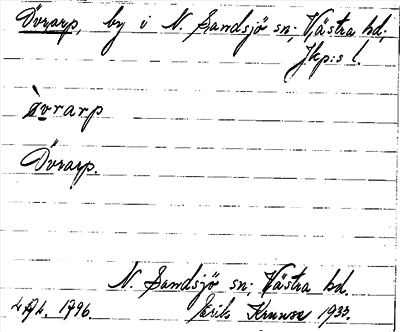 Övrarp, by i N. Sandsjö sn; Västra hd,
Jkp:s l.
övrarp
Övrarp.
N. Sandsjö sn, Västra hd.
1796. Erik 1933.